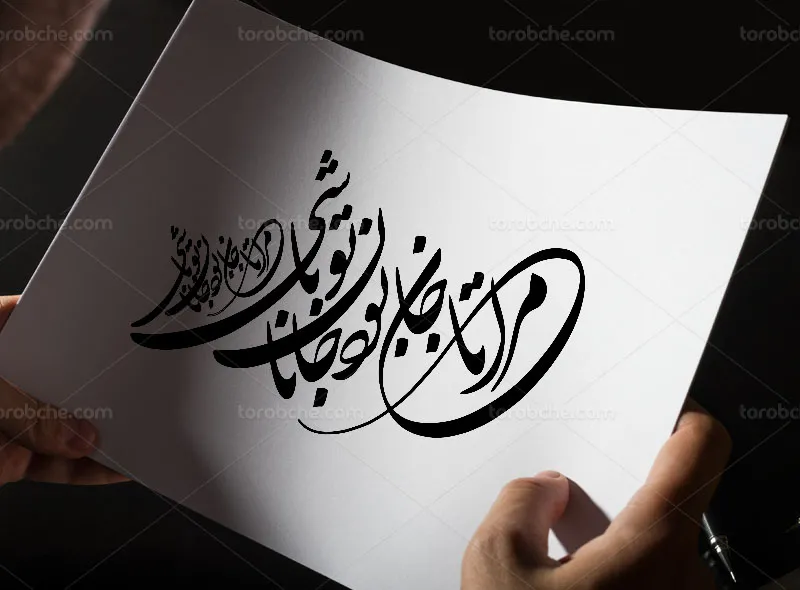 torobche.com torobche.com torobche.com
مرا تا جان بود جانان تو باشی
مرا تا جان بود جانان تو باشی
torobche.com torobche.com torobche.com
torobche.com torobche.com torobche.com